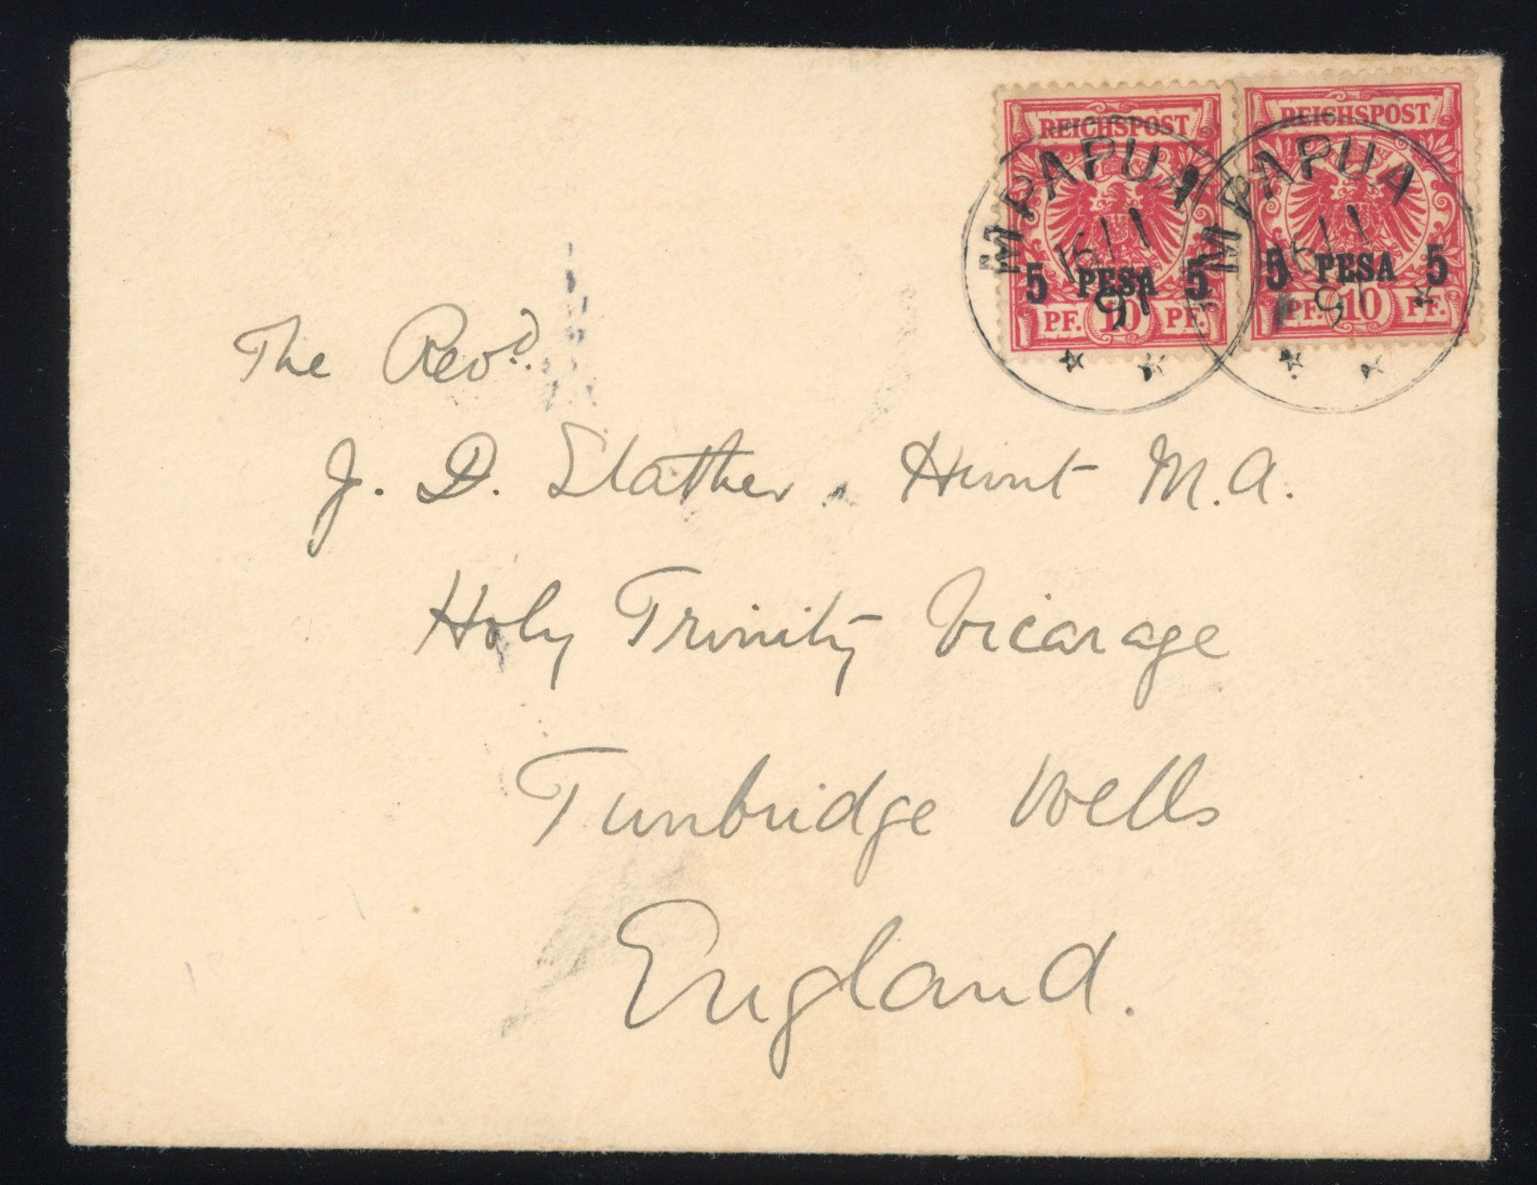 REICHSPOST REICHSPOST
MPAPUA MPAPUA
5 PESA 5 5 PESA 5
91 91
PF. 10 PF. PF. 10 PF.
The Revd.
J. D. Slather. Hunt M.A.
Holy Trinity Vicarage
Tunbridge Wells
England.